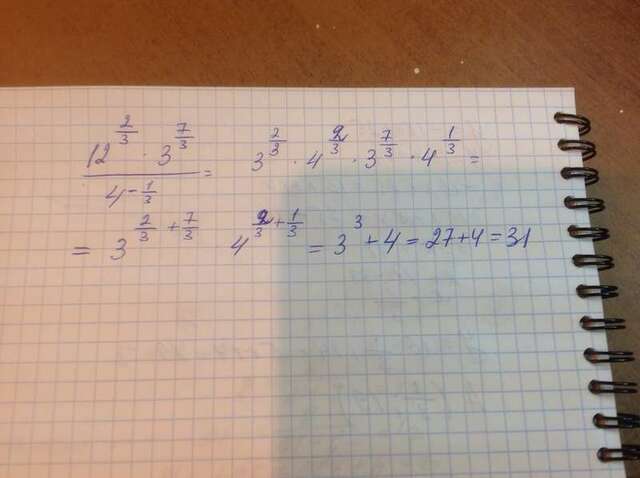 12^(2/3) · 3^(7/3) / 4^(-1/3) = 3^(2/3) · 4^(2/3) · 3^(7/3) · 4^(1/3) =
= 3^(2/3 + 7/3) 4^(2/3 + 1/3) = 3^3 + 4 = 27 + 4 = 31